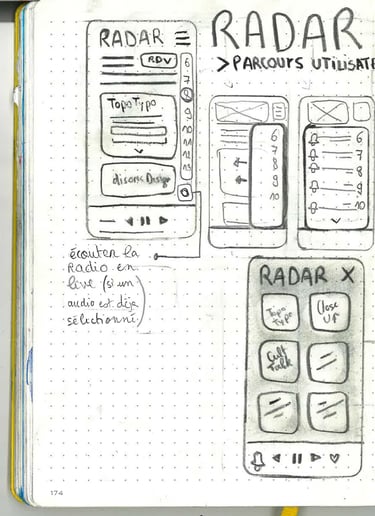 RADAR
> PARCOURS UTILISATE
RADAR
RDV
6
7
8
9
10
11
12
13
TopoTypo
disons Design
écouter la
Radio en
live (si un
audio est déjà
sélectionné)
6
7
8
9
10
6
7
8
9
10
RADAR X
Topo
Typo
Close
Up
Cult
Talk
174